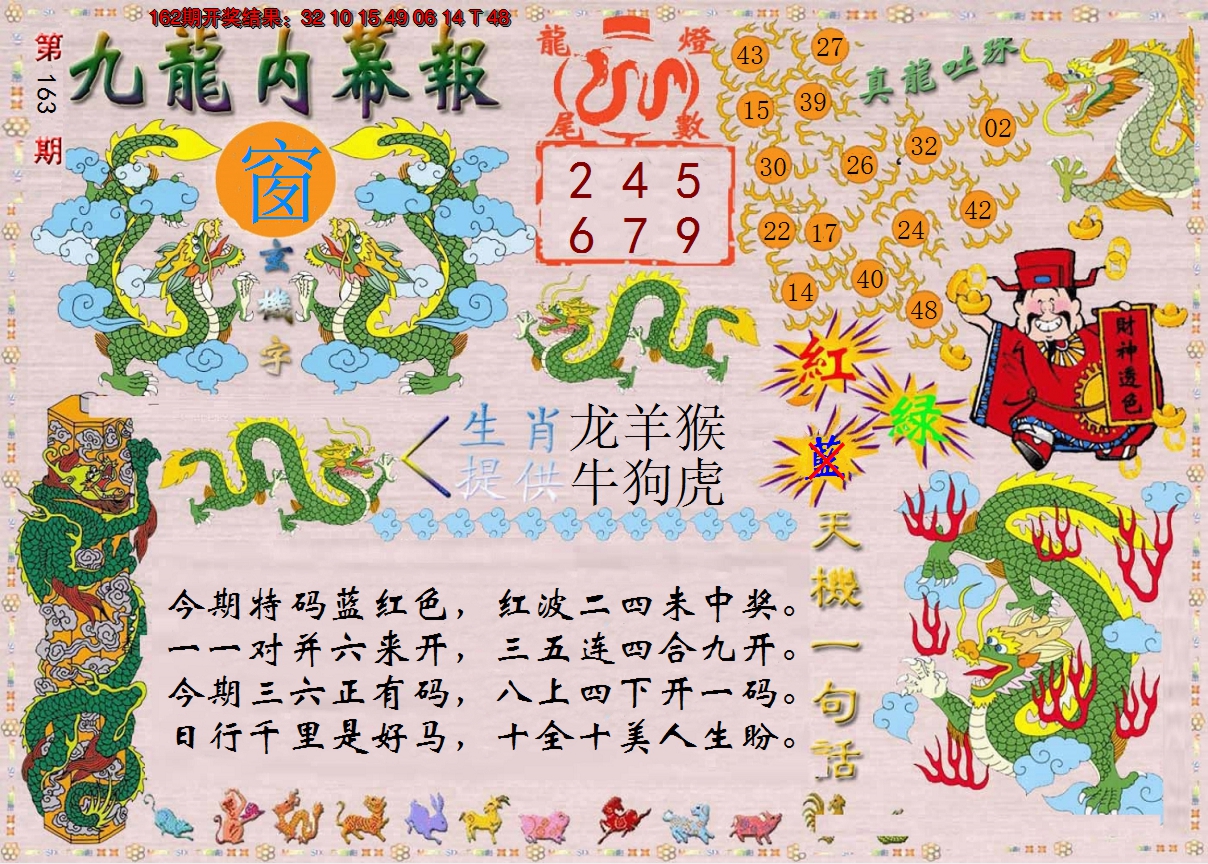 162期开奖结果：32 10 15 49 06 14 T 48
第163期
九龍内幕報
窗
玄機字
龍燈
尾數
2 4 5
6 7 9
真龍吐珠
43 27
15 39
32 02
30 26
42
22 17 24
40
14 48
財神透色
紅
緑
藍
生肖 龙羊猴
提供 牛狗虎
天機一句話
今期特码蓝红色，红波二四未中奖。
一一对并六来开，三五连四合九开。
今期三六正有码，八上四下开一码。
日行千里是好马，十全十美人生盼。